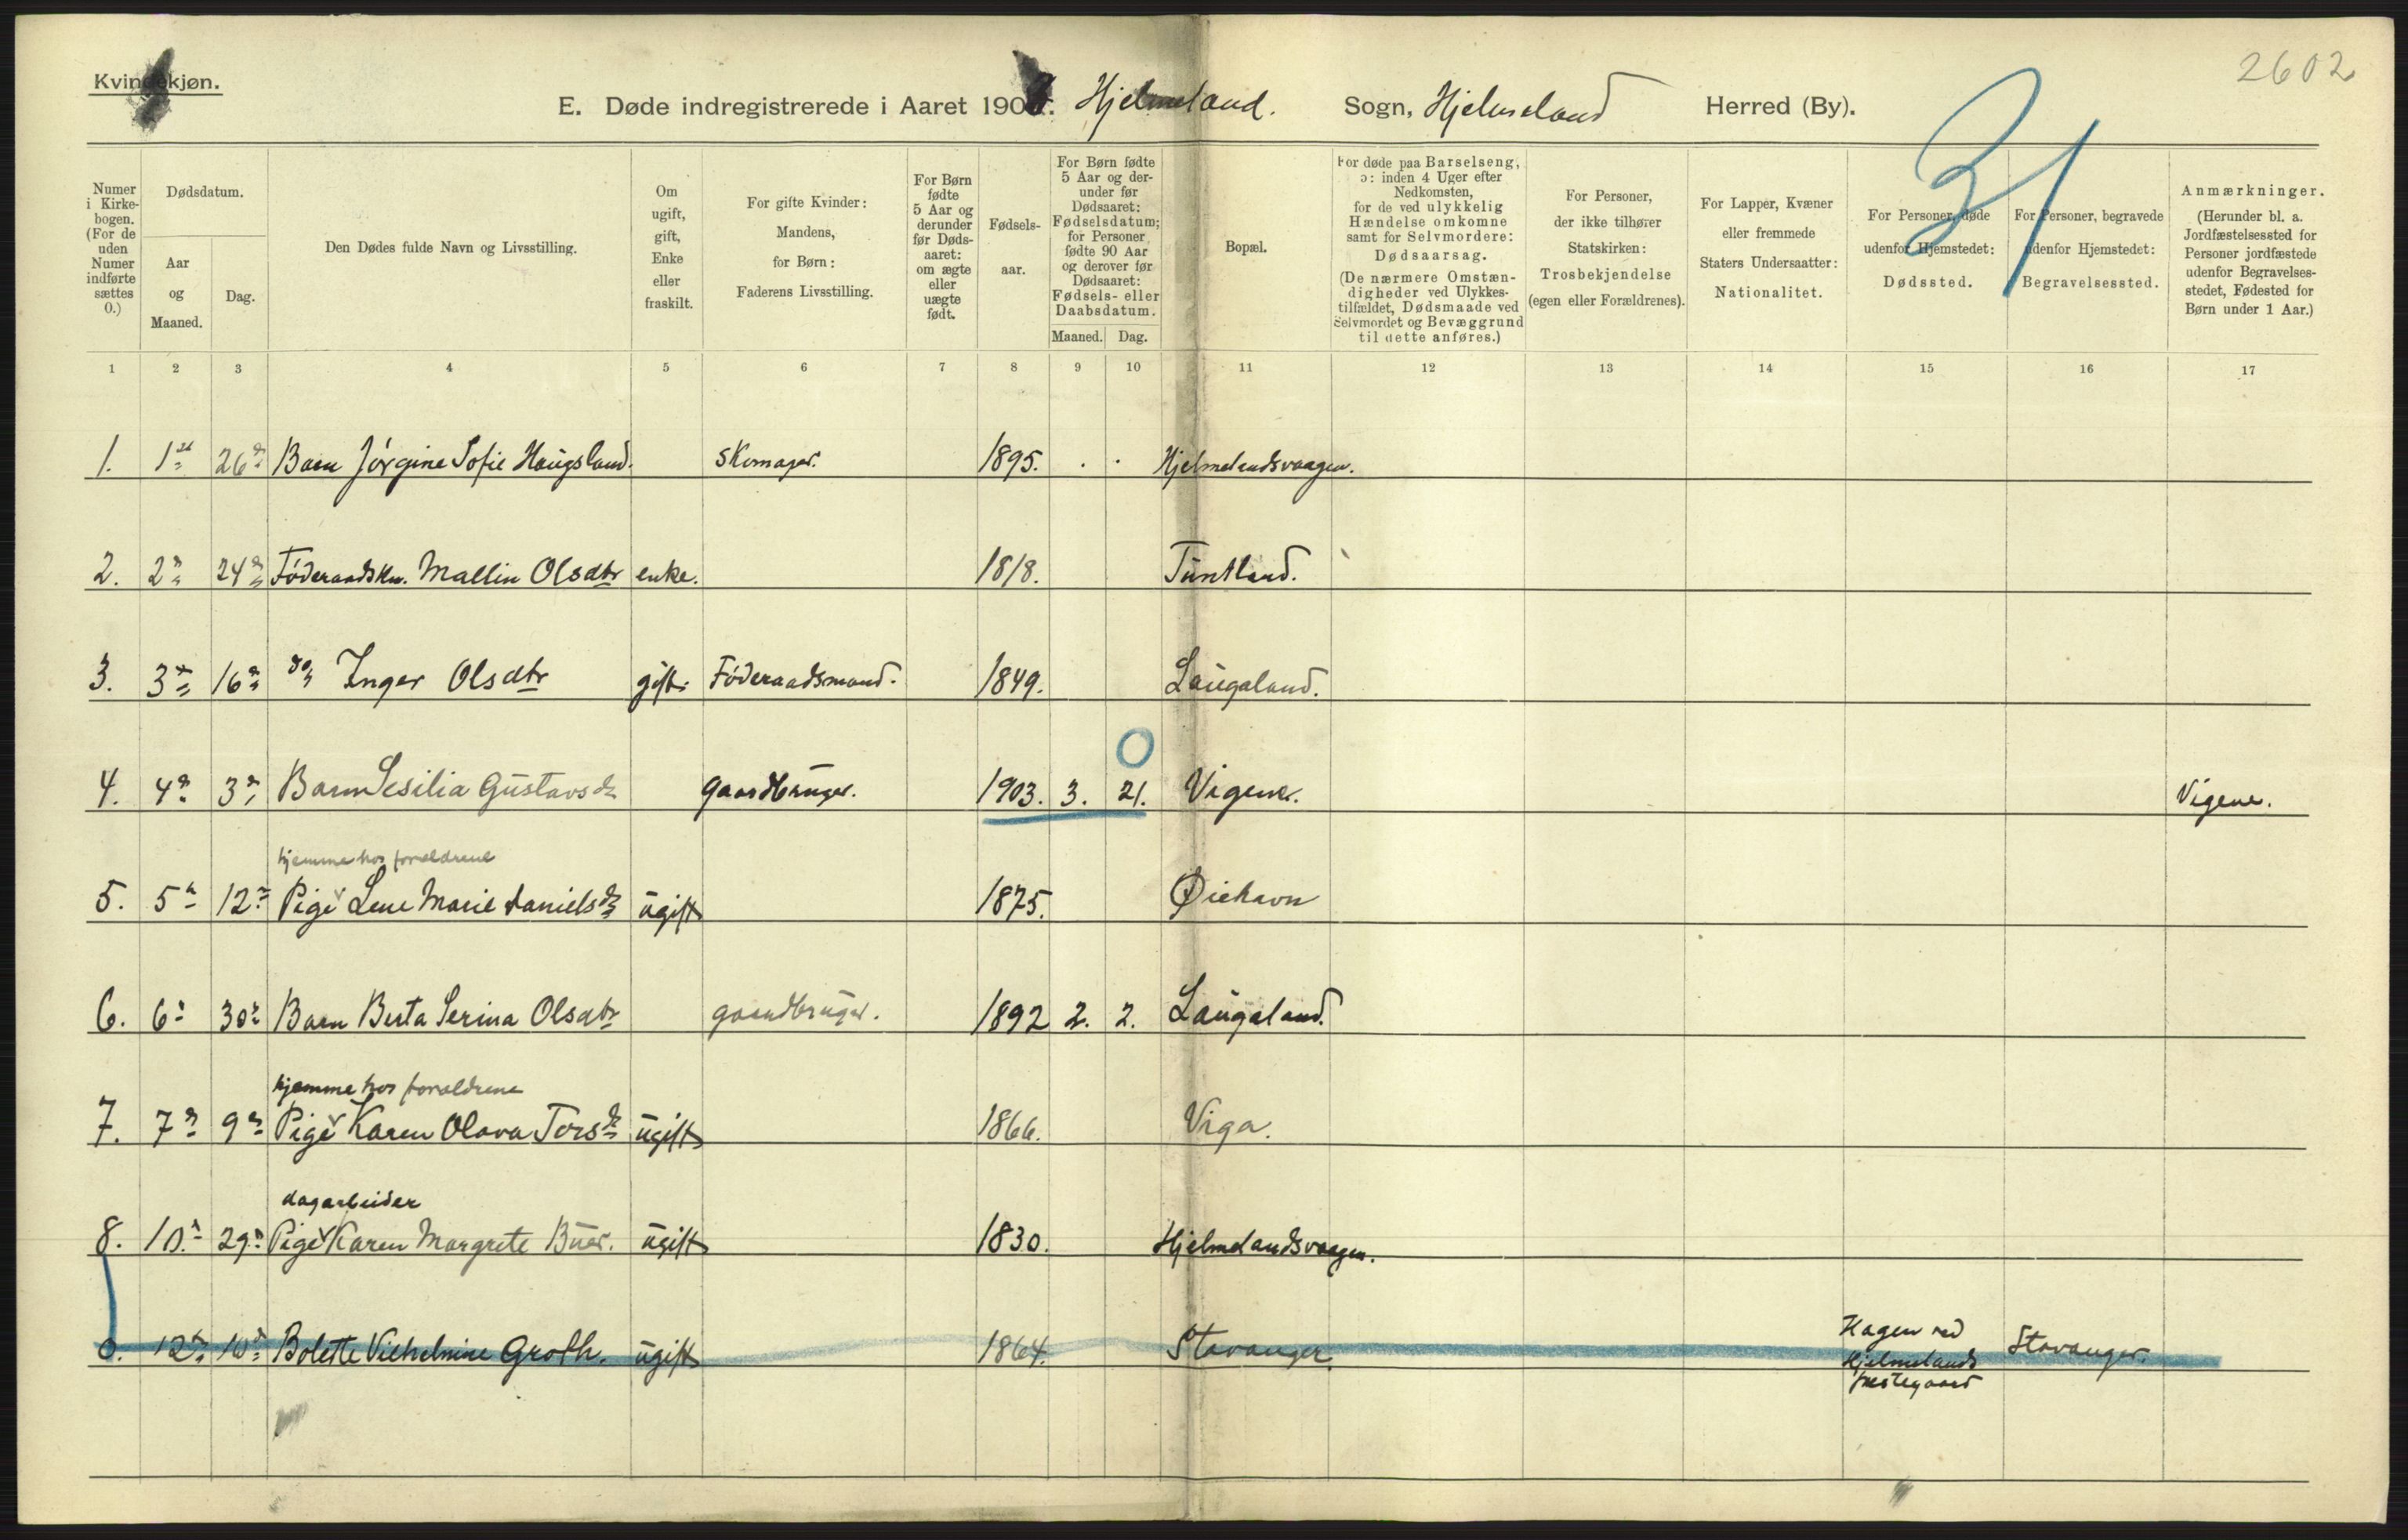 2602
Kvindekjøn.
E. Døde indregistrerede i Aaret 1903. Hjelmeland. Sogn, Hjelmeland Herred (By).
31
Numer i Kirke-bogen. (For de uden Numer indførte sættes 0.)
Dødsdatum.
Aar og Maaned.
Dag.
Den Dødes fulde Navn og Livsstilling.
Om ugift, gift, Enke eller fraskilt.
For gifte Kvinder: Mandens, for Børn: Faderens Livsstilling.
For Børn fødte 5 Aar og derunder før Døds-aaret: om ægte eller uægte født.
Fødsels-aar.
For Børn fødte 5 Aar og der-under før Dødsaaret: Fødselsdatum; for Personer fødte 90 Aar og derover før Dødsaaret: Fødsels- eller Daabsdatum.
Maaned. Dag.
Bopæl.
For døde paa Barselseng, ɔ: inden 4 Uger efter Nedkomsten, for de ved ulykkelig Hændelse omkomne samt for Selvmordere: Dødsaarsag. (De nærmere Omstæn-digheder ved Ulykkes-tilfældet, Dødsmaade ved Selvmordet og Bevæggrund til dette anføres.)
For Personer, der ikke tilhører Statskirken: Trosbekjendelse (egen eller Forældrenes).
For Lapper, Kvæner eller fremmede Staters Undersaatter: Nationalitet.
For Personer, døde udenfor Hjemstedet: Dødssted.
For Personer, begravede udenfor Hjemstedet: Begravelsessted.
Anmærkninger. (Herunder bl. a. Jordfæstelsessted for Personer jordfæstede udenfor Begravelses-stedet, Fødested for Børn under 1 Aar.)
1 2 3 4 5 6 7 8 9 10 11 12 13 14 15 16 17
1. 1ste 26de Barn Jørgine Sofie Haugsland. Skomager. 1895. . . Hjelmelandsvaagen.
2. 2n 24n Føderaadskv. Mallin Olsdtr enke. 1818. Tuntland.
3. 3die 16n do Inger Olsdtr gift. Føderaadsmand. 1849. Laugaland.
0
4. 4n 3n Barn Sesilia Gustavsd. Gaardbruger. 1903. 3. 21. Vigene. Vigene.
hjemme hos forældrene
5. 5n 12n Pige Lene Marie Danielsd. ugift 1875. Øiehavn
6. 6n 30n Barn Berta Serina Olsdtr gaardbruger. 1892 2. 2. Laugaland.
hjemme hos forældrene
7. 7n 9n Pige Karen Olava Torsd. ugift 1866. Viga.
dagarbeider
8. 10n 29n Pige Karen Margrete Buer. ugift 1830. Hjelmelandsvaagen.
0. 12n 10n Bolette Vilhelmine Groth. ugift 1864. Stavanger. Hagen ved Hjelmelands prestegaard Stavanger.